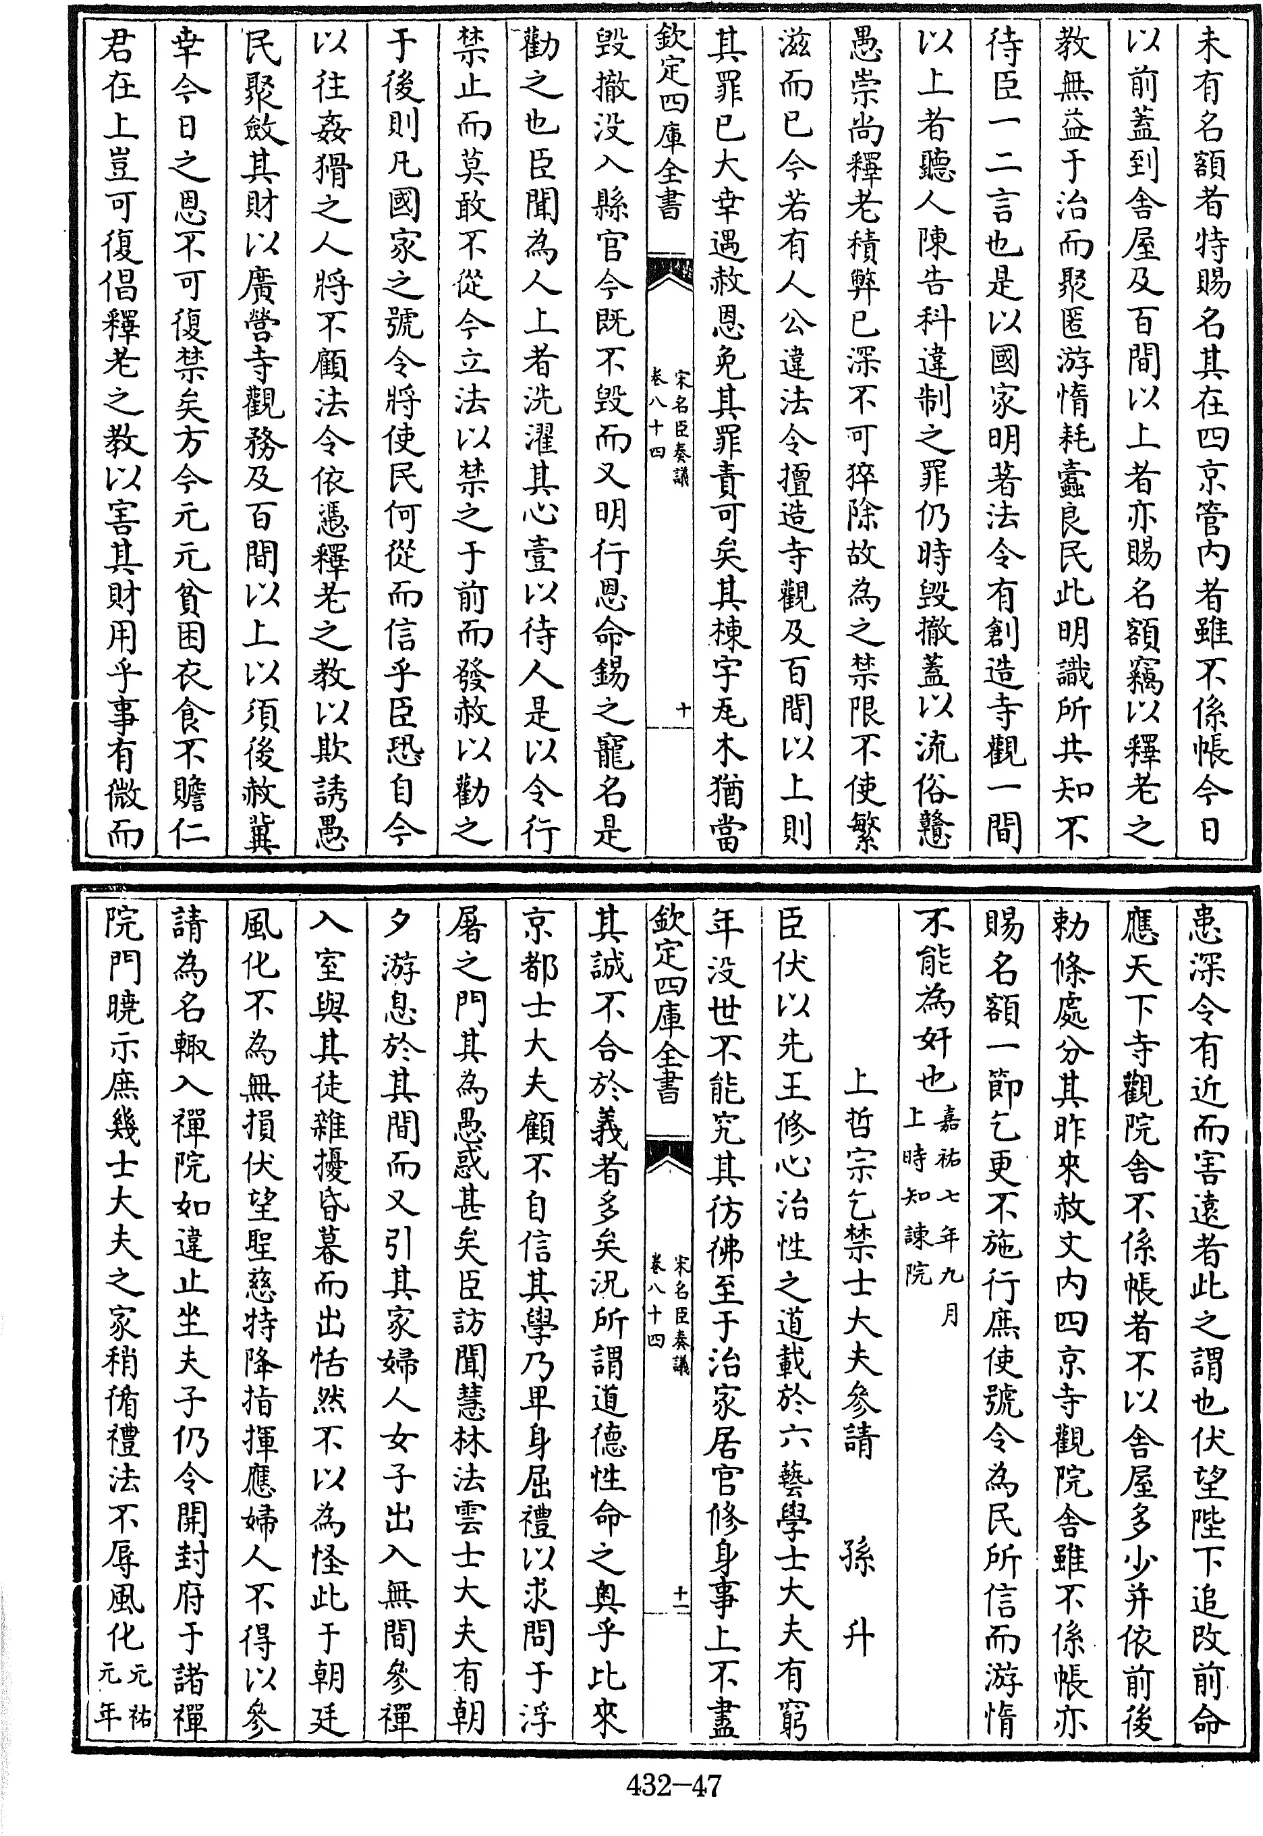 未有名額者特賜名其在四京管内者雖不係帳今日
以前蓋到舍屋及百間以上者亦賜名額竊以釋老之
教無益于治而聚匿游惰耗蠹良民此明識所共知不
待臣一二言也是以國家明著法令有創造寺觀一間
以上者聽人陳告科違制之罪仍時毁撤蓋以流俗戇
愚崇尚釋老積弊已深不可猝除故為之禁限不使繁
滋而已今若有人公違法令擅造寺觀及百間以上則
其罪已大幸遇赦恩免其罪責可矣其棟宇瓦木猶當
欽定四庫全書
宋名臣奏議
卷八十四
十
毁撤没入縣官今既不毁而又明行恩命錫之寵名是
勸之也臣聞為人上者洗濯其心壹以待人是以令行
禁止而莫敢不從今立法以禁之于前而發赦以勸之
于後則凡國家之號令將使民何從而信乎臣恐自今
以往姦猾之人將不顧法令依憑釋老之教以欺誘愚
民聚斂其財以廣營寺觀務及百間以上以須後赦冀
幸今日之恩不可復禁矣方今元元貧困衣食不贍仁
君在上豈可復倡釋老之教以害其財用乎事有微而
患深令有近而害遠者此之謂也伏望陛下追改前命
應天下寺觀院舍不係帳者不以舍屋多少并依前後
勅條處分其昨來赦文内四京寺觀院舍雖不係帳亦
賜名額一節乞更不施行庶使號令為民所信而游惰
不能為奸也嘉祐七年九月上時知諫院
上哲宗乞禁士大夫參請　孫升
臣伏以先王修心治性之道載於六藝學士大夫有窮
年没世不能究其彷彿至于治家居官修身事上不盡
欽定四庫全書
宋名臣奏議
卷八十四
十一
其誠不合於義者多矣況所謂道德性命之奥乎比來
京都士大夫顧不自信其學乃卑身屈禮以求問于浮
屠之門其為愚惑甚矣臣訪聞慧林法雲士大夫有朝
夕游息於其間而又引其家婦人女子出入無間參禪
入室與其徒雜擾昏暮而出恬然不以為怪此于朝廷
風化不為無損伏望聖慈特降指揮應婦人不得以參
請為名輙入禪院如違止坐夫子仍令開封府于諸禪
院門曉示庶幾士大夫之家稍循禮法不辱風化元祐元年
432—47